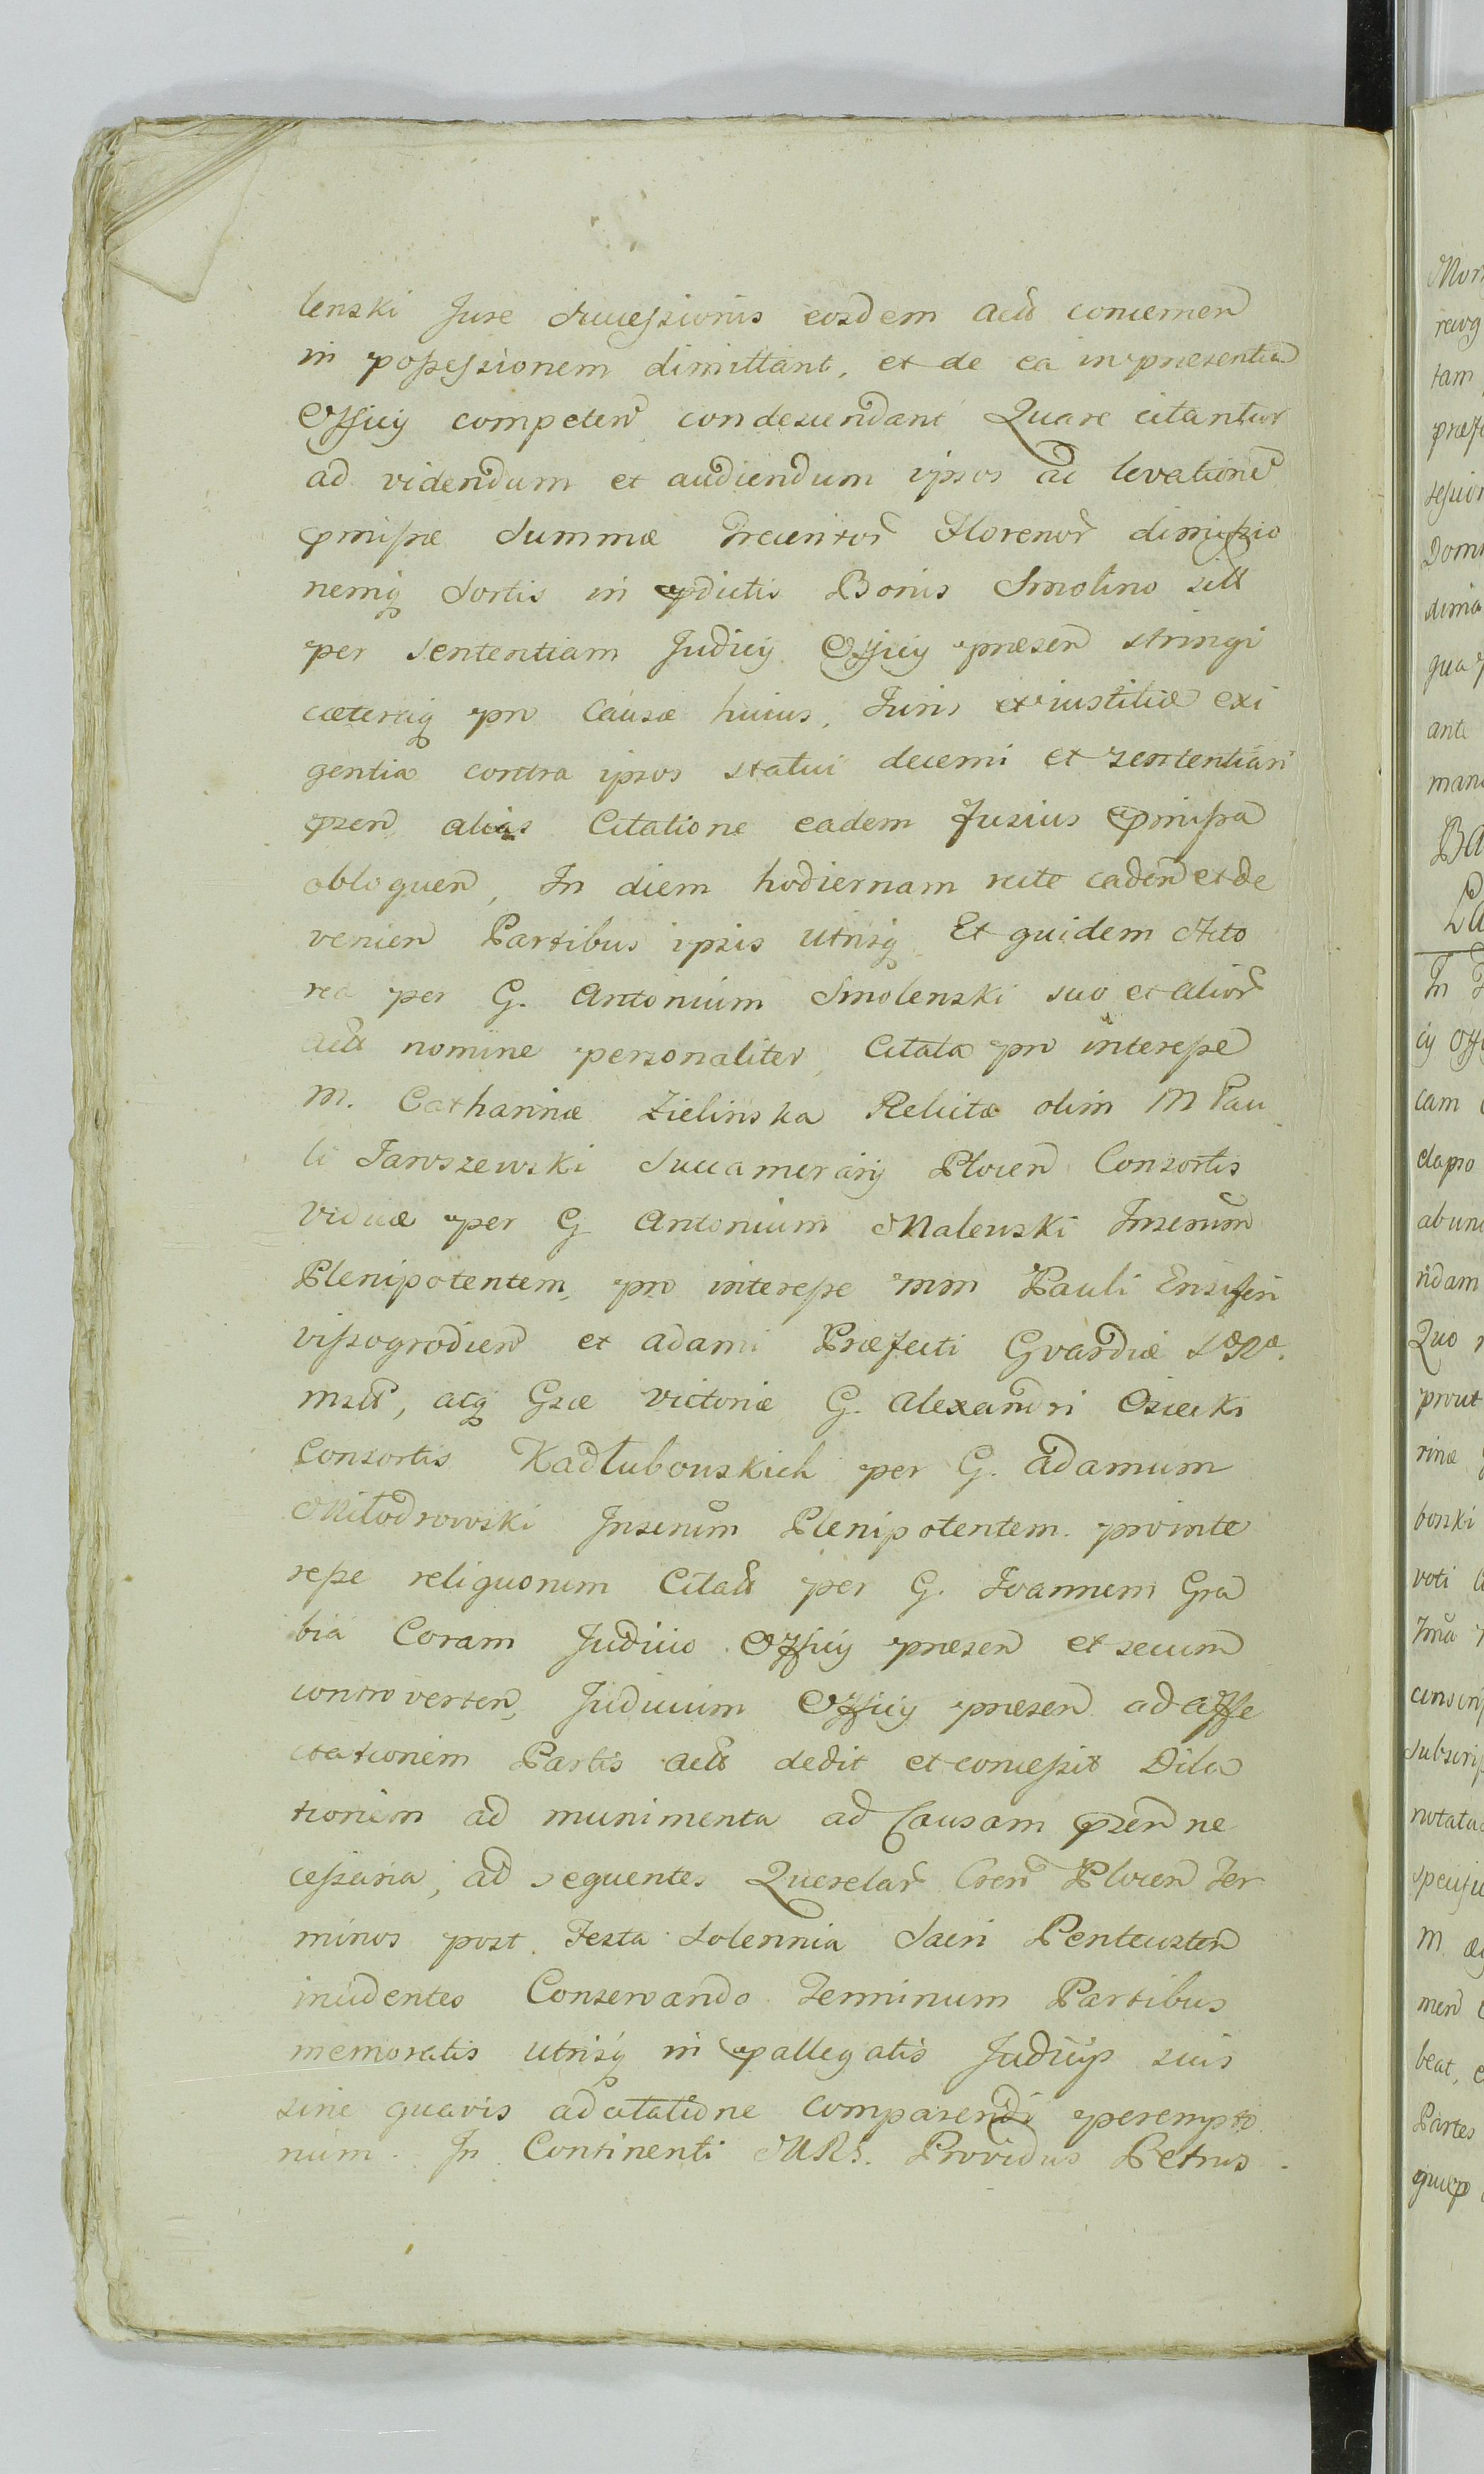 lenski Jure Successionis eosdem act concernen
in possessionem dimittant, et de ea in præsentia
Officij competen condescendant Quare citantur
ad videndum et audiendum ipsos ad levatione
pmissæ Summæ Trecentor Florenor dimissio
nemq Sortis in pdictis Bonis Smolino sitt
per Sententiam Judicij Officij præsen stringi
cæteraq pro Causæ huius, Juris et iustitiæ exi
gentia contra ipsos statui decerni et sententiari
psen alias Citatione eadem fusius pmissa
obloquen, In diem hodiernam recte caden et de
venien Partibus ipsis utrisq Et quidem Acto
rea per G. Antonium Smolenski suo et alior
act nomine personaliter, Citata pro interesse
M. Catharinæ Zielinska Relictæ olim M Pau
li Jaroszewski Succamerarij Plocen Consortis
viduæ per G Antonium Malewski Inserum
Plenipotentem, pro interesse mm Pauli Ensiferi
vissogrodien et Adami Præfecti Gvardiæ
mstt, atq Gsæ victoriæ G. Alexandri Osiecki
Consortis Kadłubowskich per G. Adamum
Miłodrowski Inserum Plenipotentem. pro inte
resse reliquorum Citatt per G. Joannem Gra
bia Coram Judicio Officij præsen et secum
controverten, Judicium Officij præsen ad affe
ctationem Partis act dedit et concessit Dila
tionem ad munimenta ad Causam psen ne
cessaria, ad sequentes Querelar Cren Plocen Ter
minos post Festa Solennia Sacri Pentecosten
incidentes Conservando Terminum Partibus
memoratis utrisq in pallegatis Judicijs suis
sine quavis adcitatione comparendi perempto
rium. In Continenti MRS. Providus Petrus